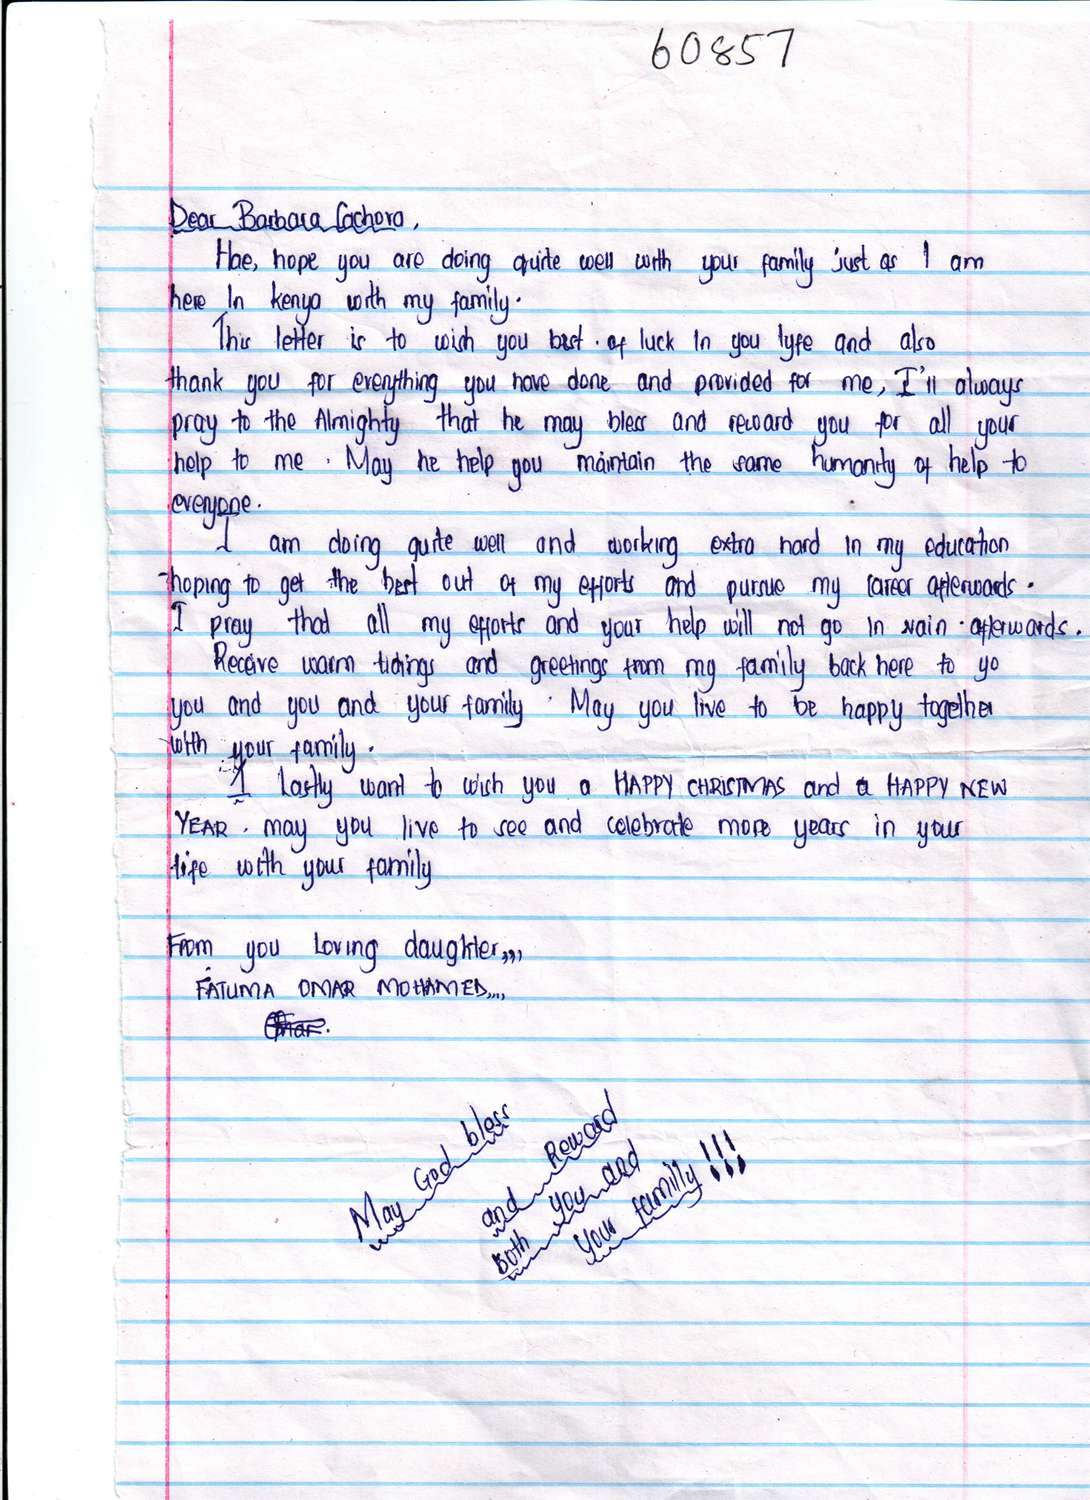 60857
Dear Barbara Cachora,
Hae, hope you are doing quite well with your family just as I am
here In kenya with my family.
This letter is to wish you best. of luck In you lyfe and also
thank you for everything you have done and provided for me, I'll always
pray to the Almighty that he may bless and reward you for all your
help to me. May he help you maintain the same humanity of help to
everyone.
I am doing quite well and working extra hard In my education
hoping to get the best out of my efforts and pursue my career afterwards.
I pray that all my efforts and your help will not go In vain. afterwards.
Receive warm tidings and greetings from my family back here to yo
you and you and your family. May you live to be happy together
with your family.
I Lastly want to wish you a HAPPY CHRISTMAS and a HAPPY NEW
YEAR. may you live to see and celebrate more years in your
life with your family
From you Loving daughter,,,,
FATUMA OMAR MOHAMED,,,,
May God bless
and Reward
Both you and
your family!!!